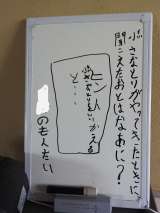 小さなとりがやってきたときに、
聞こえたおとはなあに？
ヒント
いいかえる
と…
のもんだい